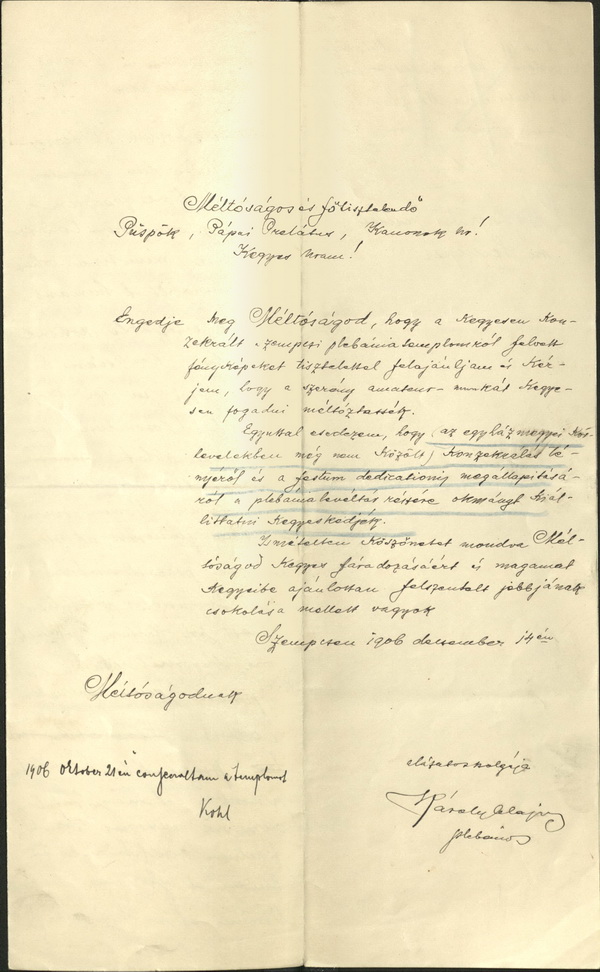 Méltóságos és főtisztelendő
Püspök, Pápai Prelátus, Kanonok úr!
Kegyes uram!
Engedje meg Méltóságod, hogy a kegyesen kon-
zekrált szempczi plébániatemplomról felvett
fényképeket tisztelettel felajánljam és kér-
jem, hogy a szerény amateur-munkát kegye-
sen fogadni méltóztassék.
Egyúttal esedezem, hogy (az egyházmegyei kör-
levelekben még nem közölt) konzekrálás té-
nyéről és a festum dedicationis megállapításá-
ról a plébánialevéltár részére okmányt kiál-
líttatni kegyeskedjék.
Ismételten köszönetet mondva Mél-
tóságod kegyes fáradozásáért és magamat
kegyeibe ajánlottan felszentelt jobbjának
csókolása mellett vagyok
Szempczen 1906 december 14én
Méltóságodnak
alázatos szolgája
Károly Alajos
plébános
1906 oktober 21én consecraltam a templomot
Kohl